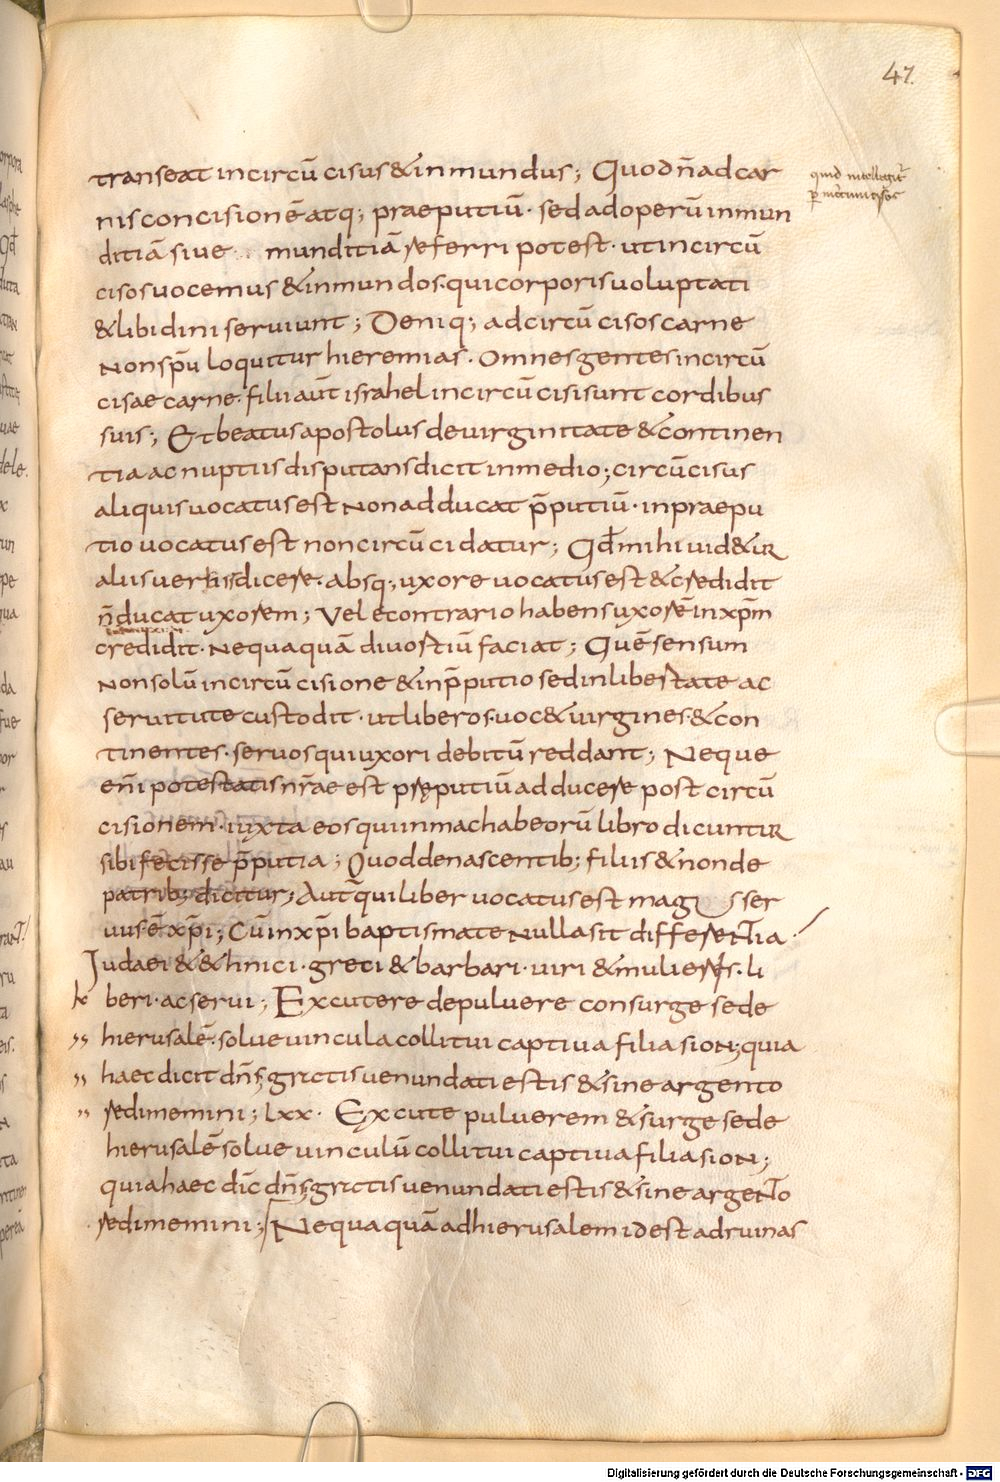 47.
transeat incircū cisus & inmundus; Quod n̄ ad car
nis concisionē atq; praeputiū· sed ad operū inmun
ditiā siue munditiā referri potest· ut incircū
cisos uocemus & inmundos· qui corporis uoluptati
& libidini seruiunt; Deniq; ad circū cisos carne
non sp̄u loquitur hieremias· Omnes gentes incircū
cisae carne· filii aut̄ israhel incircū cisi sunt cordibus
suis; Et beatus apostolus de uirginitate & continen
tia ac nuptiis disputans dicit in medio; circūcisus
aliquis uocatus est non adducat p̄putiū· in praepu
tio uocatus est non circū cidatur; Qd̄ mihi uid&ur
aliis uerbis dicere· absq; uxore uocatus est & credidit
n̄ ducat uxorem; Vel e contrario habens uxorē in xp̄m
credidit· nequaquā diuortiū faciat; Quē sensum
non solū in circū cisione & in p̄putio sed in libertate ac
seruitute custodit· ut liberos· uoc& uirgines· & con
tinentes· seruos qui uxori debitū reddant; Neque
eni̅ potestatis nr̄ae est pręputiū adducere post circū
cisionem· iuxta eos qui in machabeorū libro dicuntur
sibi fecisse p̄putia; Quod de nascentib; filiis & non de
patrib; dicitur; Aut̄ qui liber uocatus est magis ser
uus ē xp̄i; Cū in xp̄i baptismate nulla sit differentia·
Iudaei & & hnici· greci & barbari· uiri & mulieris· li
beri· ac serui; Excutere de puluere consurge sede
hierusalē· solue uincula colli tui captiua filia sion; quia
haec dicit dn̄s; gratis uenundati estis & sine argento
redimemini; lxx· Excute puluerem & surge sede
hierusalē solue uinculū colli tui captiua filia sion;
quia haec dic̄ dn̄s; gratis uenundati estis & sine argento
redimemini; Nequaquā ad hierusalem id est ad ruinas
quid intellegit̄
Digitalisierung gefördert durch die Deutsche Forschungsgemeinschaft - DFG